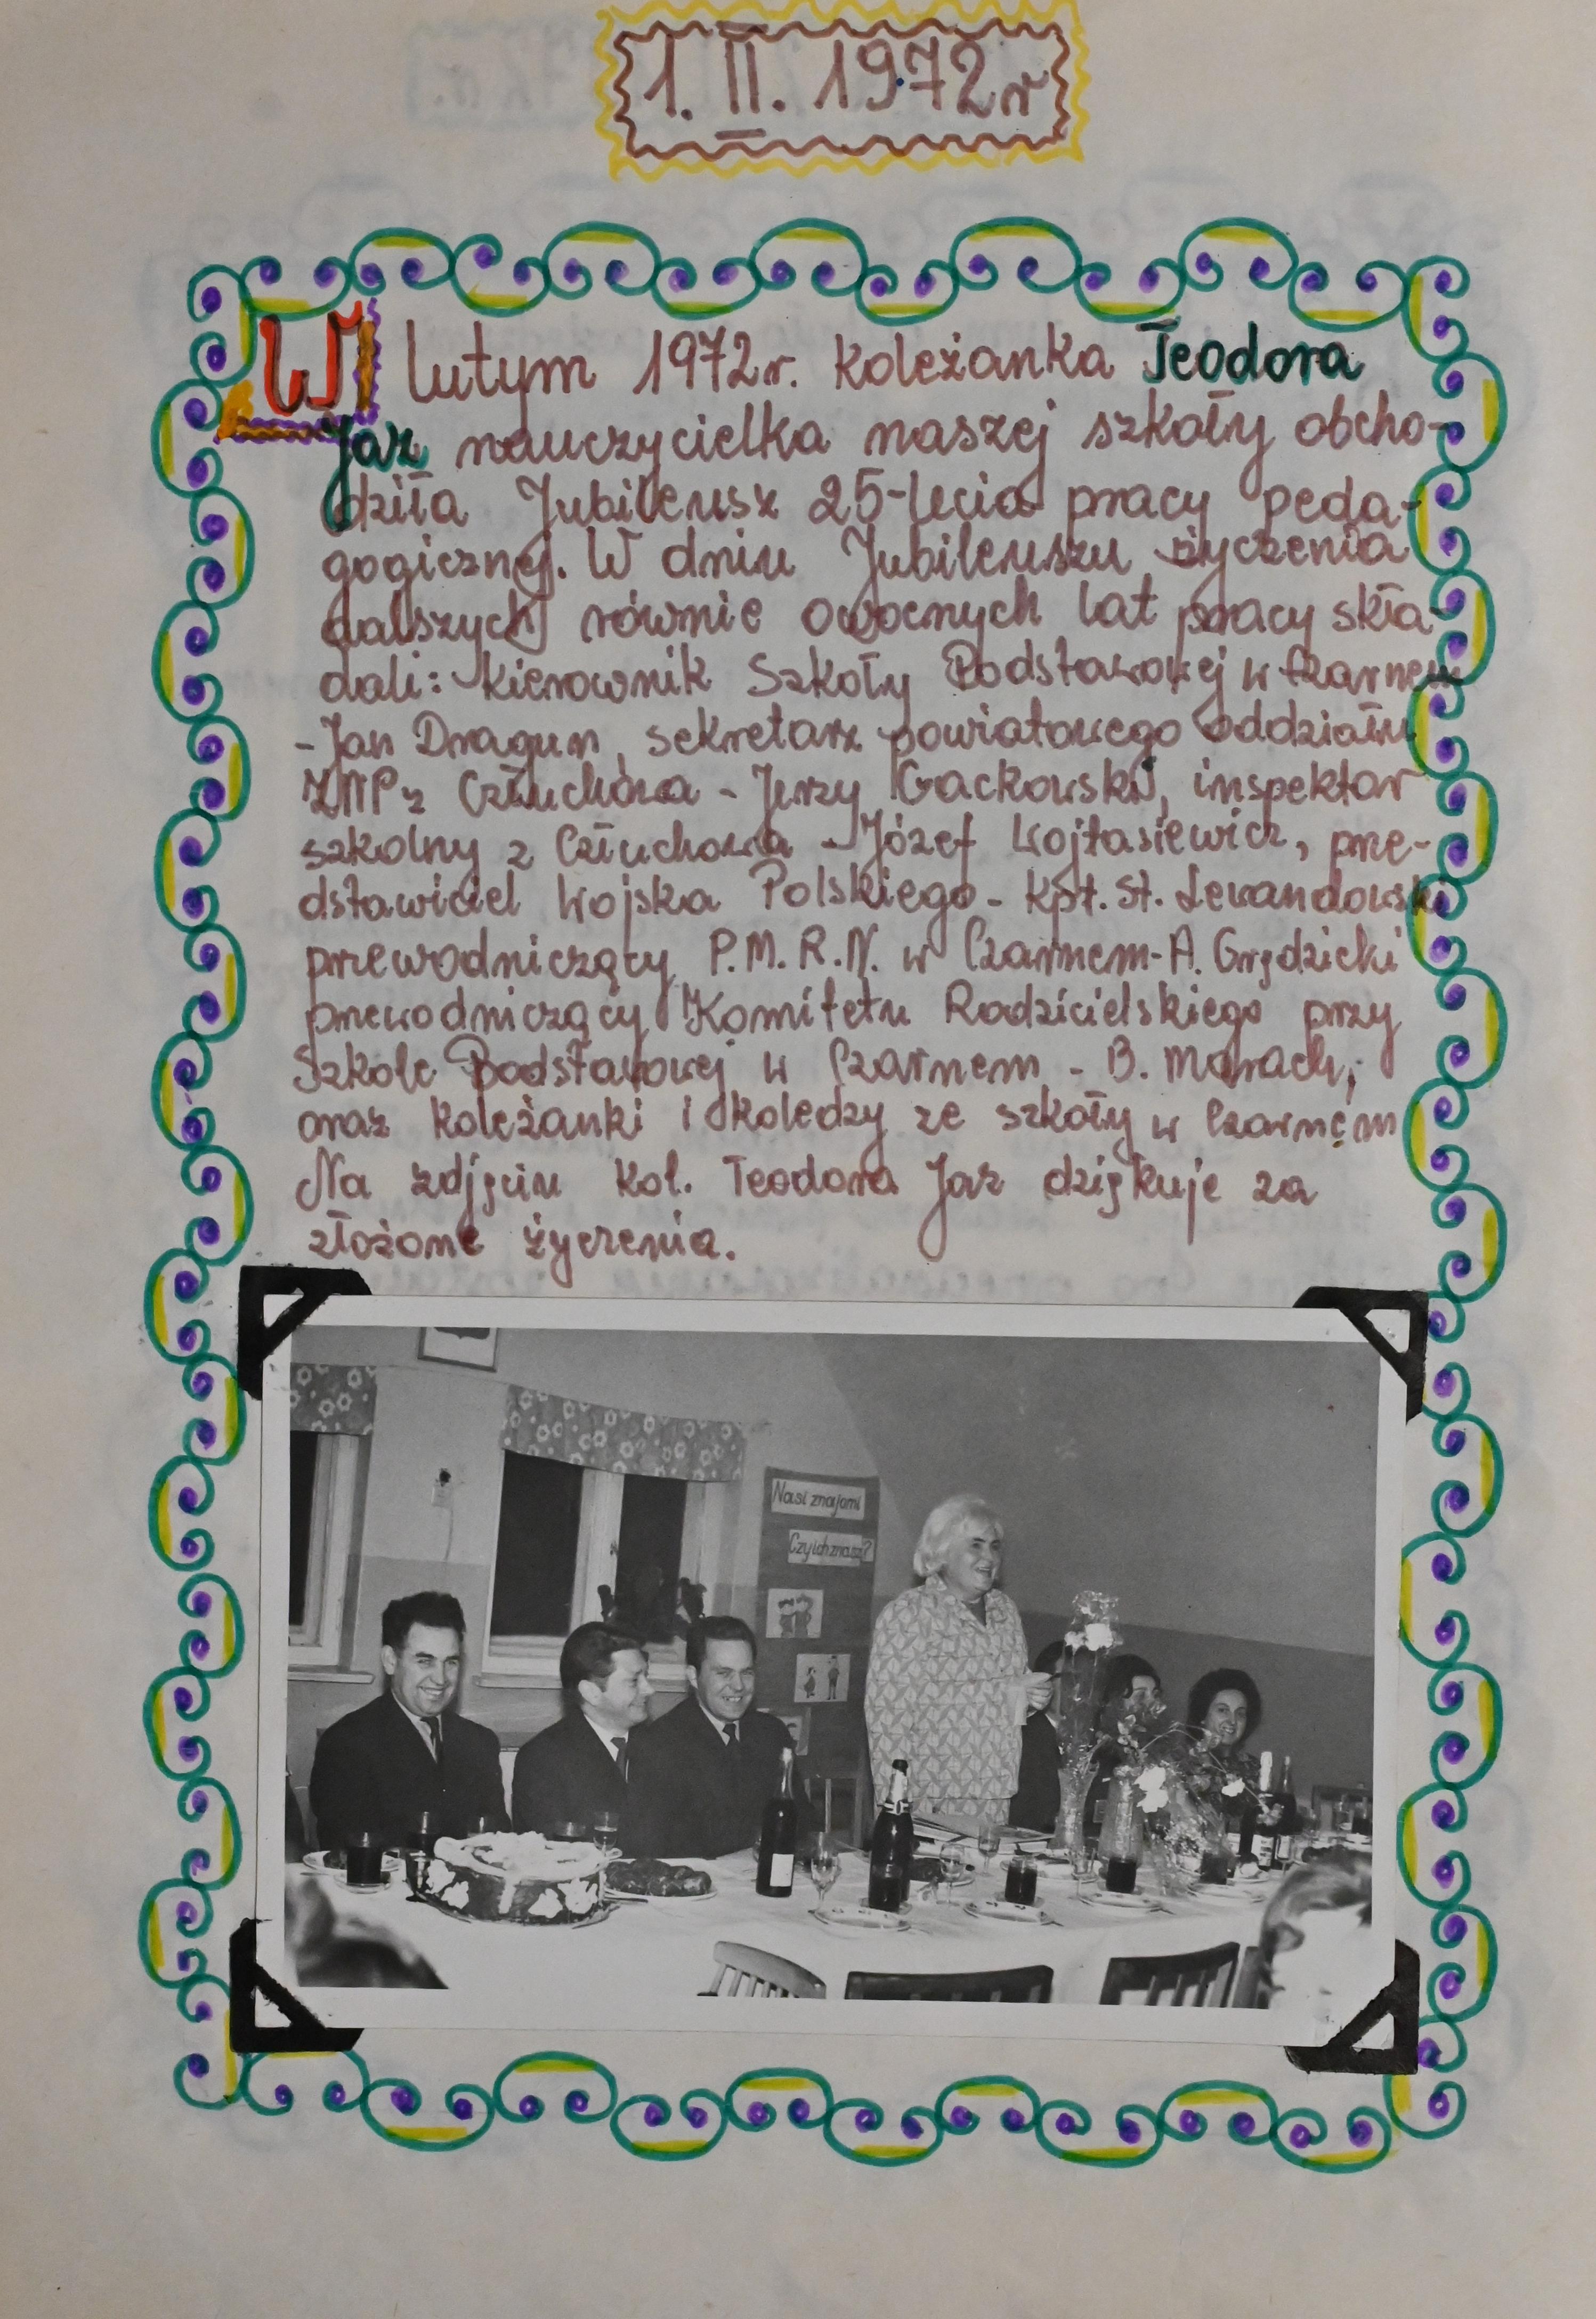 1. II. 1972 r
W lutym 1972 r. koleżanka Teodora
Jaz nauczycielka naszej szkoły obcho-
dziła Jubileusz 25-lecia pracy peda-
gogicznej. W dniu Jubileuszu życzenia
dalszych równie owocnych lat pracy skła-
dali: Kierownik Szkoły Podstawowej w Czarnem
- Jan Dragun, sekretarz powiatowego oddziału
ZNP z Człuchowa - Jerzy Gackowski, inspektor
szkolny z Człuchowa - Józef Wojtasiewicz, prze-
dstawiciel Wojska Polskiego - kpt. St. Lewandowski
przewodniczący P.M.R.N. w Czarnem - A. Grędzicki
przewodniczący Komitetu Rodzicielskiego przy
Szkole Podstawowej w Czarnem - B. Marach,
oraz koleżanki i koledzy ze szkoły w Czarnem
Na zdjęciu kol. Teodora Jaz dziękuje za
złożone życzenia.
Nasi znajomi
Czy ich znasz?